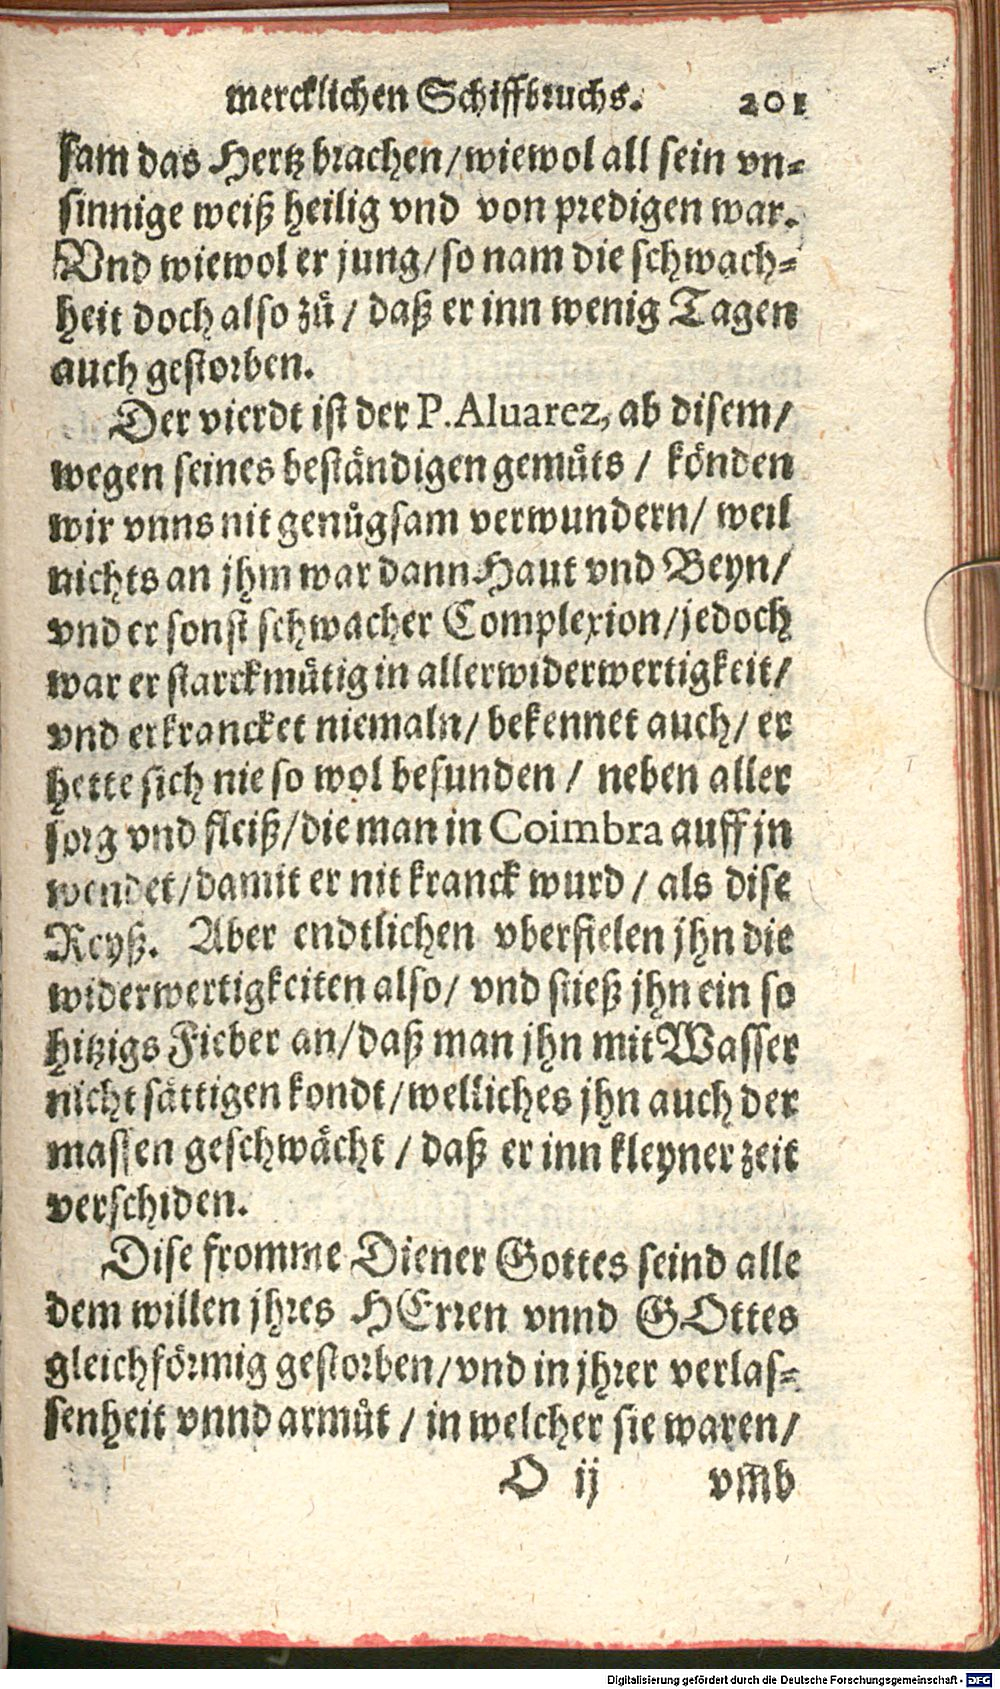 mercklichen Schiffbruchs. 201
sam das Hertz brachen/wiewol all sein vn-
sinnige weiß heilig vnd von predigen war.
Vnd wiewol er jung/so nam die schwach-
heit doch also zů / daß er inn wenig Tagen
auch gestorben.
Der vierdt ist der P. Aluarez, ab disem/
wegen seines beständigen gemüts / könden
wir vnns nit genůgsam verwundern/ weil
nichts an jhm war dann Haut vnd Beyn/
vnd er sonst schwacher Complexion/jedoch
war er starckmütig in aller widerwertigkeit/
vnd erkrancket niemaln/ bekennet auch/ er
hette sich nie so wol befunden / neben aller
sorg vnd fleiß/die man in Coimbra auff jn
wendet/damit er nit kranck wurd / als dise
Reyß. Aber endtlichen vberfielen jhn die
widerwertigkeiten also/ vnd stieß jhn ein so
hitzigs Fieber an/daß man jhn mit Wasser
nicht sättigen kondt/welliches jhn auch der
massen geschwächt / daß er inn kleyner zeit
verschiden.
Dise fromme Diener Gottes seind alle
dem willen jhres HErren vnnd GOttes
gleichförmig gestorben/vnd in jhrer verlas-
senheit vnnd armůt / in welcher sie waren/
O ij vm̃b
Digitalisierung gefördert durch die Deutsche Forschungsgemeinschaft - DFG